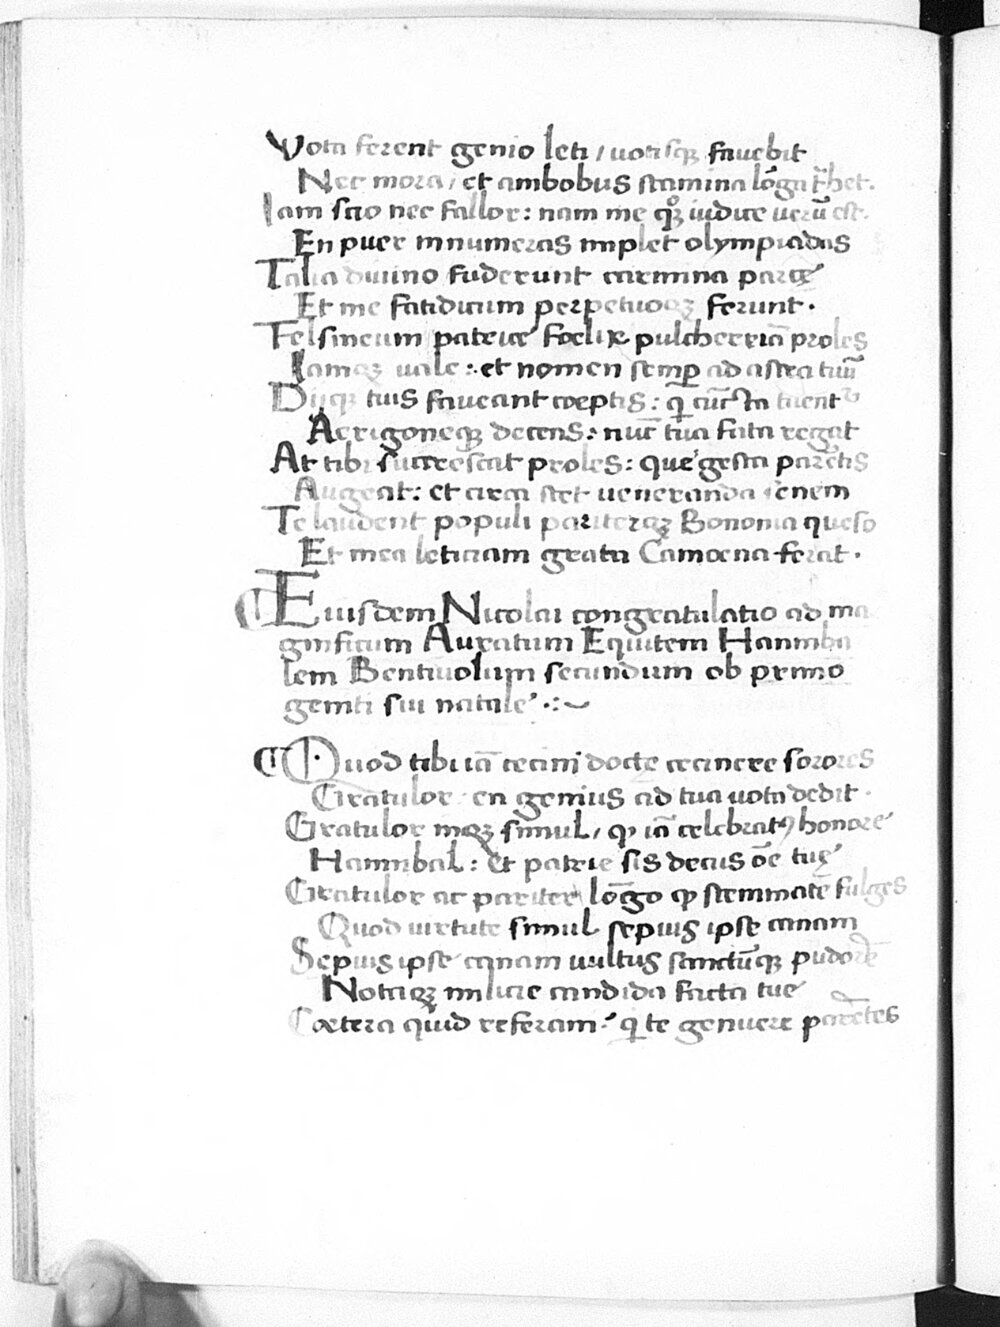 Vota ferent genio leti / uotisq; fauebit
Nec mora / et ambobus stamina lõga t̃het.
Iam scio nec fallor : nam me q̊; iudice uerũ est.
En puer innumeras implet olympiadas
Talia diuino fuderunt carmina parcę
Et me fatidicum perpetuoq; ferunt .
Felsineum patrie foelix pulcherriã proles
Iamq; uale : et nomen semp ad astra tuũ
Dijq; tuis faueant coeptis : q̃ cũcta tuent᷑
Aerigoneq; decens : nũc tua fata regat
At tibi succrescat proles : que gesta parẽtis
Augeat : et circa stet ueneranda senem
Te laudent populi pariterq; Bononia queso
Et mea leticiam grata Camoena ferat .
Eiusdem Nicolai congratulatio ad ma
gnificum Auratum Equitem Hanniba
lem Bentiuolum secundum ob primo
geniti sui natale .:~
Quod tibi iã cecini doctę cecinere sorores
Gratulor en genius ad tua uota dedit .
Gratulor inq; simul / ꝙ iã celebratꝰ honore
Hannibal : Et patrie sis decus õe tuę
Gratulor ac pariter lõgo ꝙ stemmate fulges
Quod uirtute simul sepius ipse canam
Sepius ipse canam uultus sanctũq; pudorẽ
Notaq; milicie candida facta tue
Coetera quid referam ? q̃ te genuere parẽtes